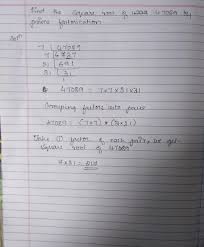 Find the square root of 47089 by
prime factorisation
Sol
7 | 47089
7 | 6727
31 | 961
31 | 31
1
47089 = 7×7×31×31
Grouping factors into pairs
47089 = (7×7) × (31×31)
Take 1 factor of each pair, we get
Square root of 47089
7×31 =